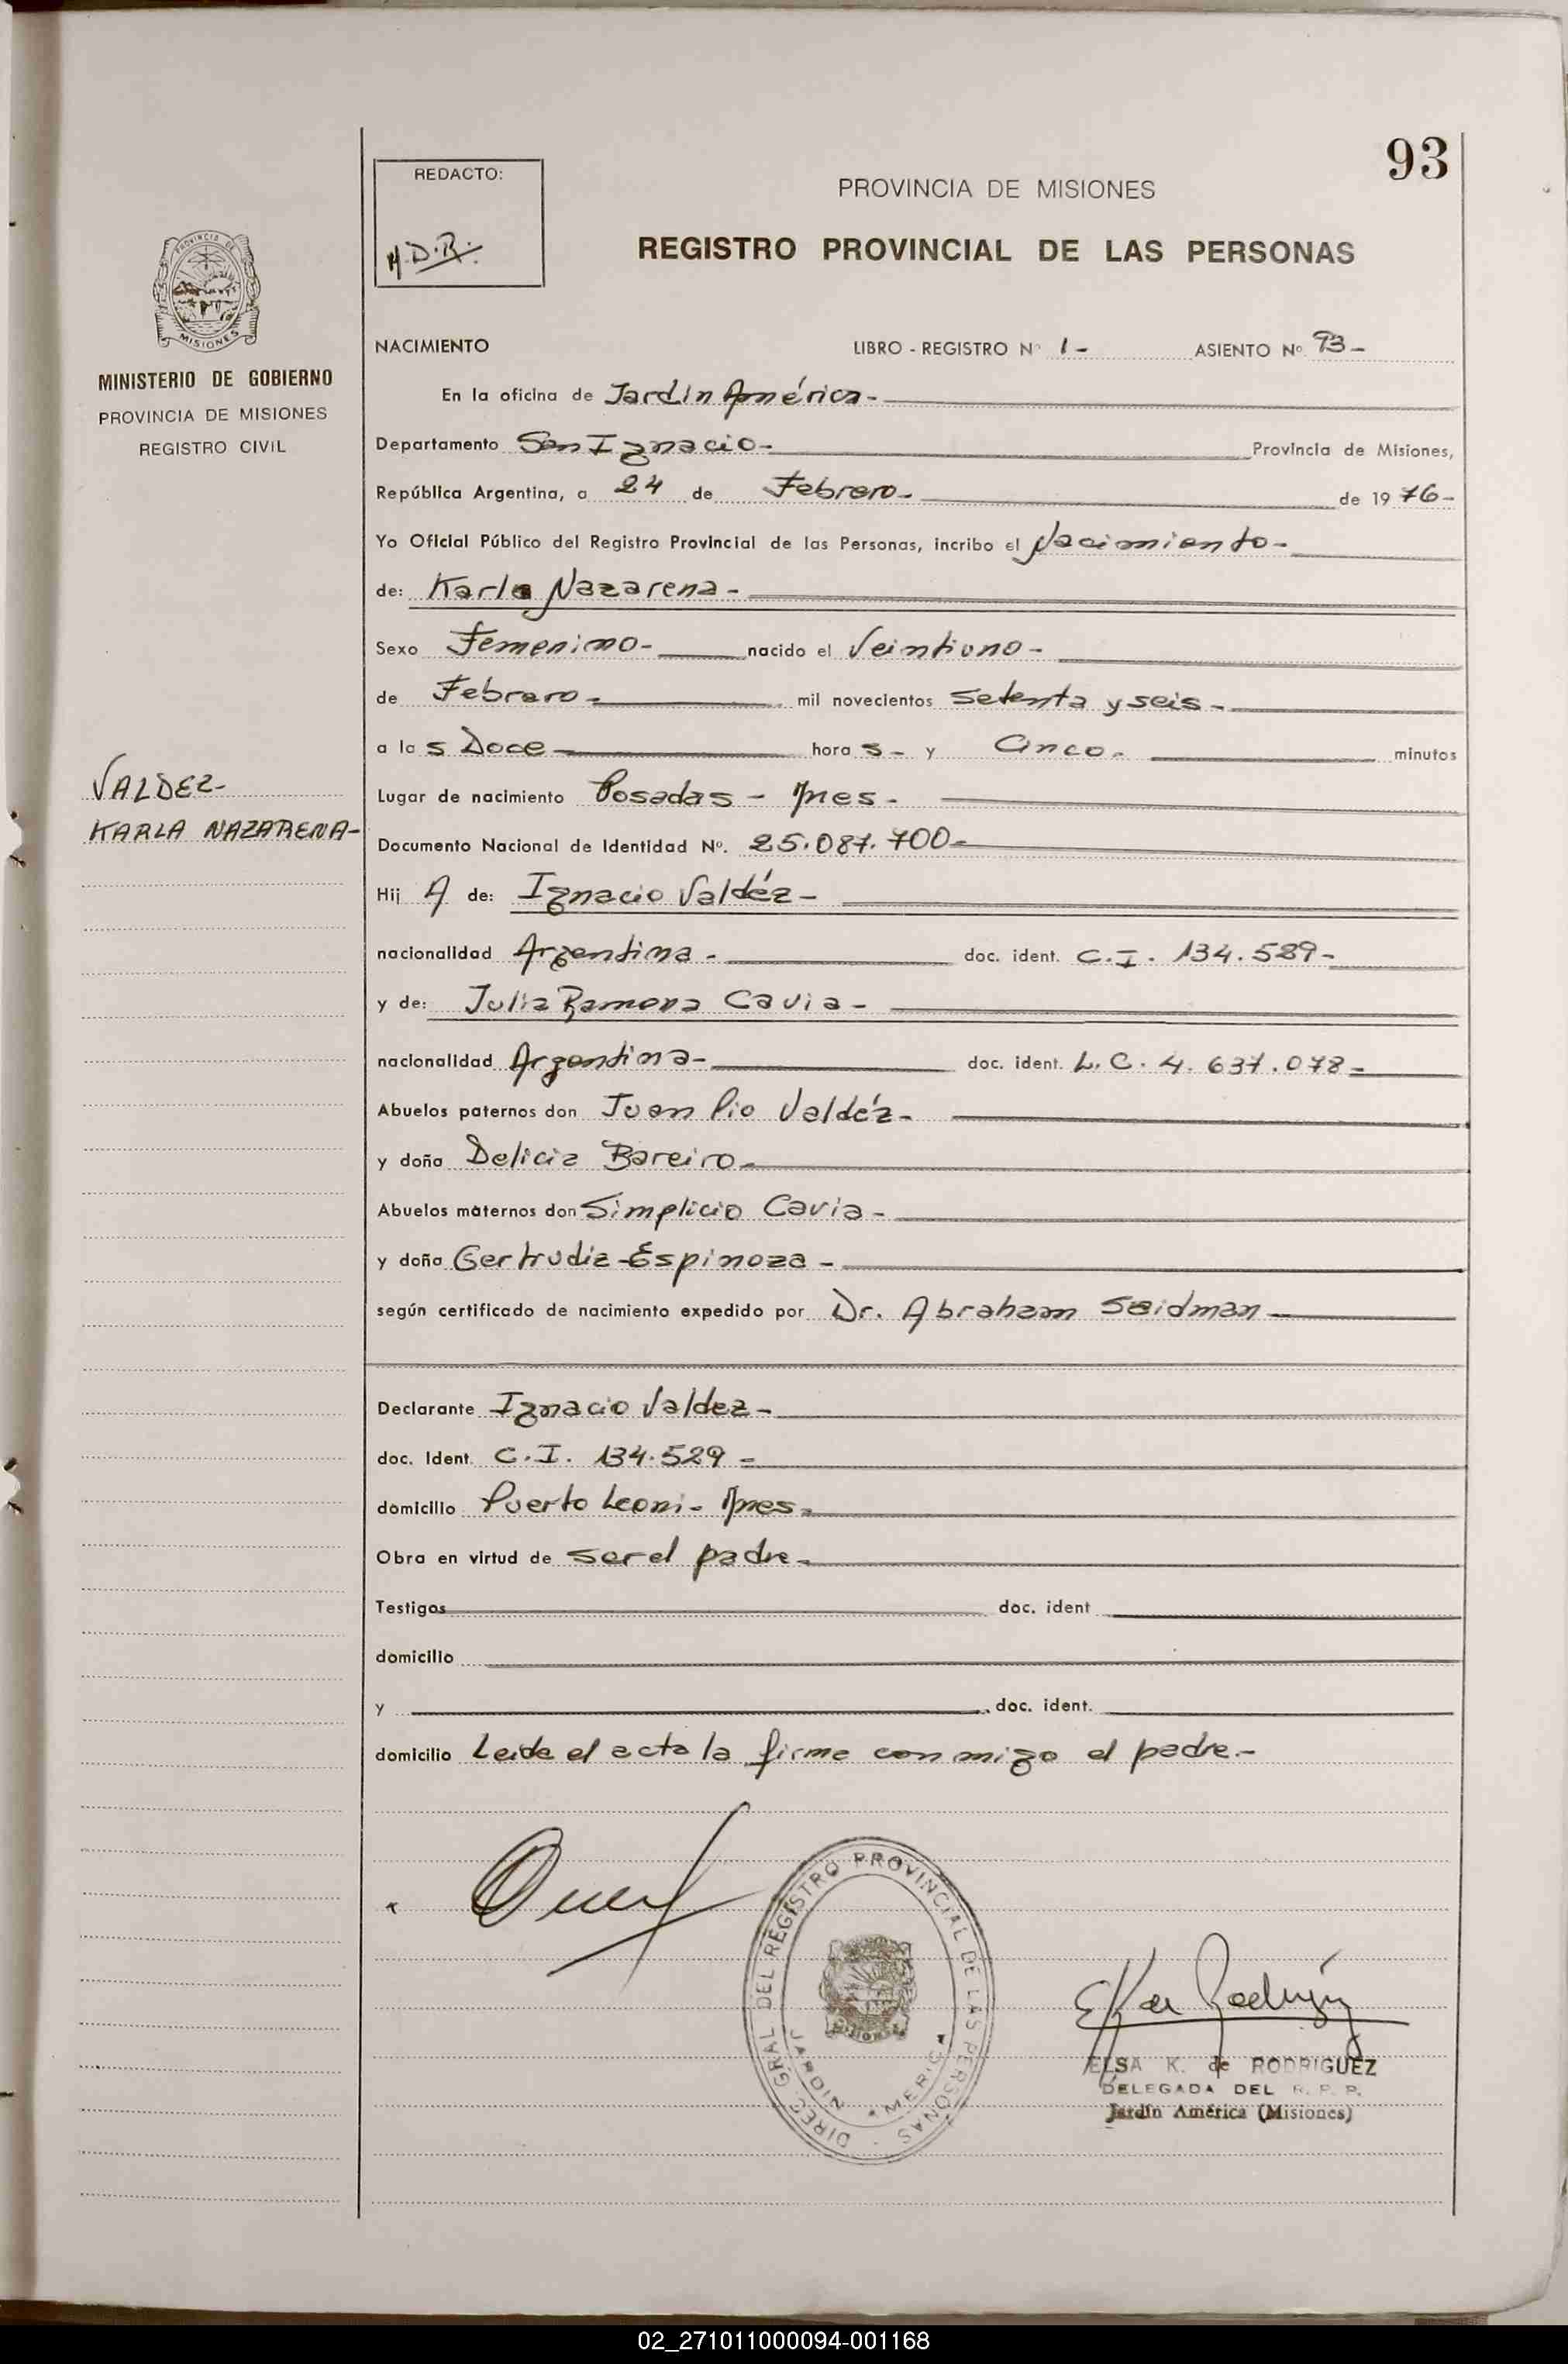 93
REDACTO:
M.D.R.
PROVINCIA DE MISIONES
REGISTRO PROVINCIAL DE LAS PERSONAS
PROVINCIA DE
MISIONES
MINISTERIO DE GOBIERNO
PROVINCIA DE MISIONES
REGISTRO CIVIL
NACIMIENTO LIBRO - REGISTRO Nº 1- ASIENTO Nº 93-
En la oficina de Jardin América-
Departamento San Ignacio- Provincia de Misiones,
República Argentina, a 24 de Febrero- de 1976-
Yo Oficial Público del Registro Provincial de las Personas, incribo el Nacimiento-
de: Karla Nazarena-
Sexo Femenino- nacido el Veintiuno-
de Febrero- mil novecientos setenta y seis-
a las Doce horas- y Cinco- minutos
VALDEZ-
KARLA NAZARENA-
Lugar de nacimiento Posadas - Mnes-
Documento Nacional de Identidad Nº. 25.087.700-
Hij A de: Ignacio Valdéz-
nacionalidad Argentina- doc. ident. C.I. 134.529-
y de: Julia Ramona Cavia-
nacionalidad Argentina- doc. ident. L.C. 4.637.078-
Abuelos paternos don Juan Pio Valdéz-
y doña Delicia Bareiro-
Abuelos maternos don Simplicio Cavia-
y doña Gertrudiz Espinoza-
según certificado de nacimiento expedido por Dr. Abraham Seidman
Declarante Ignacio Valdez-
doc. Ident. C.I. 134.529-
domicilio Puerto Leoni- Mnes-
Obra en virtud de ser el padre-
Testigos doc. ident
domicilio
y doc. ident.
domicilio Leida el acta la firma conmigo el padre.-
DIREC. GRAL DEL REGISTRO PROVINCIAL DE LAS PERSONAS
JARDIN AMERICA
MISIONES
E K de Rodriguez
ELSA K. de RODRIGUEZ
DELEGADA DEL R. P. P.
Jardín América (Misiones)
02_271011000094-001168